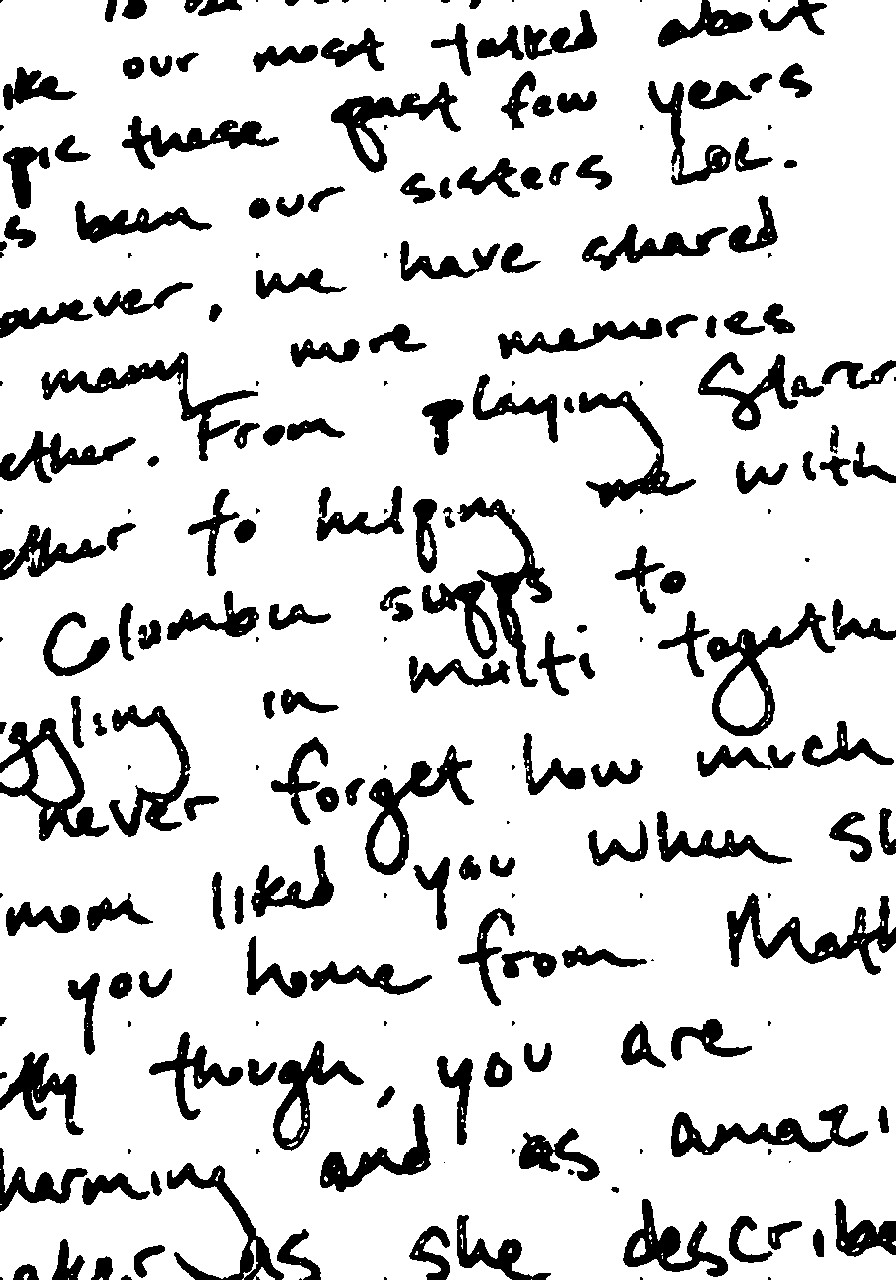 like our most talked about
pic these past few years
s been our sisters LOL.
owever, we have shared
many more memories
ether. From playing
ether to helping me with
Columbia supps to
ggling in multi together
never forget how much
mom liked you when sh
you home from Math
tly though, you are
harming and as amazi
aker as she describe